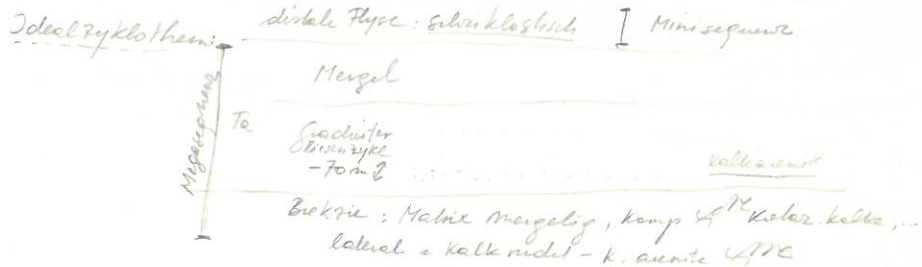 Idealzyklothem: distale Flysc: siliziklastisch Minisequenz
Mergel
Megasequenz
Ta
Gradierter
Riesenzykl
-70m
Kalkarenit
Brekzie: Matrix mergelig, Komp Kretaz. Kalke,...
lateral = Kalkrudit - K. arenite